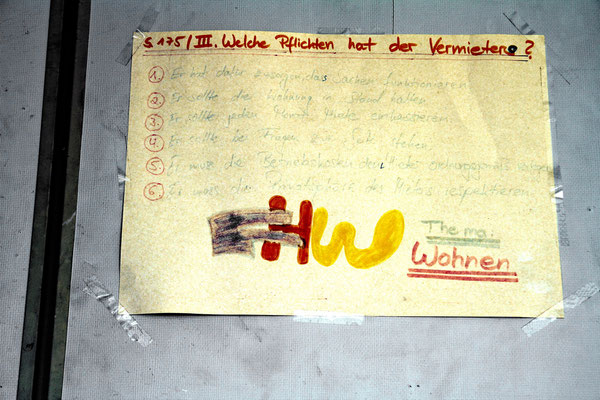 S. 175/III. Welche Pflichten hat der Vermieter?
1. Er hat dafür zu sorgen, das Sachen funktionieren
2. Er sollte die Wohnung in stand halten
3. Er sollte jeden
4. Er sollte bei Fragen zur Seite stehen
5. Er muss die Betriebskosten
6. Er muss die Privatsphäre des Mieters respektieren
HW
Thema:
Wohnen